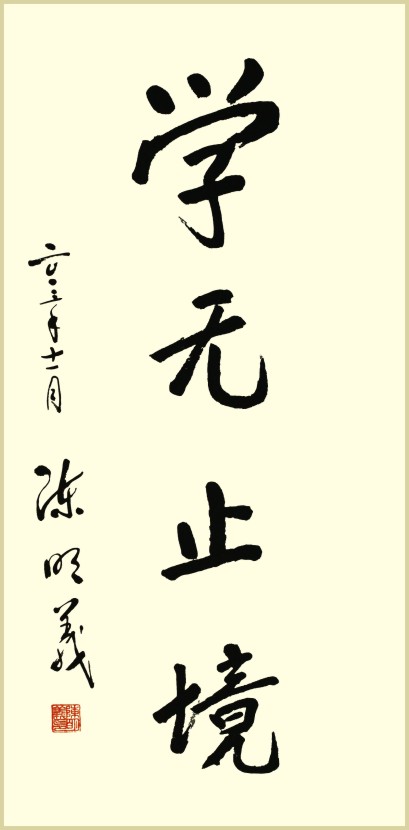 学无止境
二〇一三年十一月
陈明義